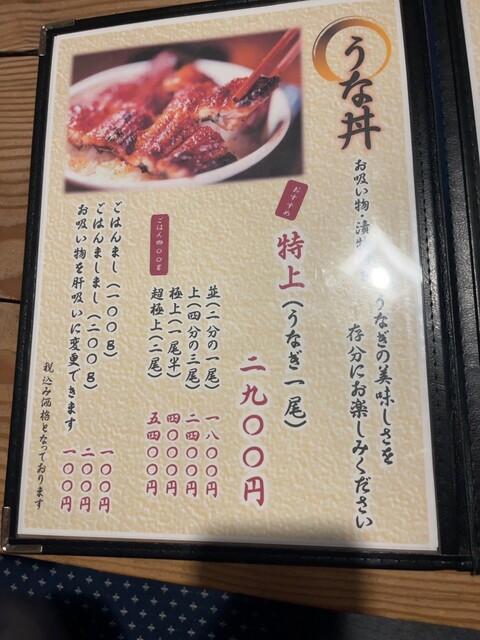 うな丼
お吸い物・漬物
うなぎの美味しさを
存分にお楽しみください
おすすめ
特上(うなぎ一尾)
二九〇〇円
ごはん四〇〇g
並(二分の一尾) 一八〇〇円
上(四分の三尾) 二四〇〇円
極上(一尾半) 四〇〇〇円
超極上(二尾) 五四〇〇円
ごはんまし(一〇〇g) 一〇〇円
ごはんましまし(二〇〇g) 二〇〇円
お吸い物を肝吸いに変更できます 一〇〇円
税込み価格となっております